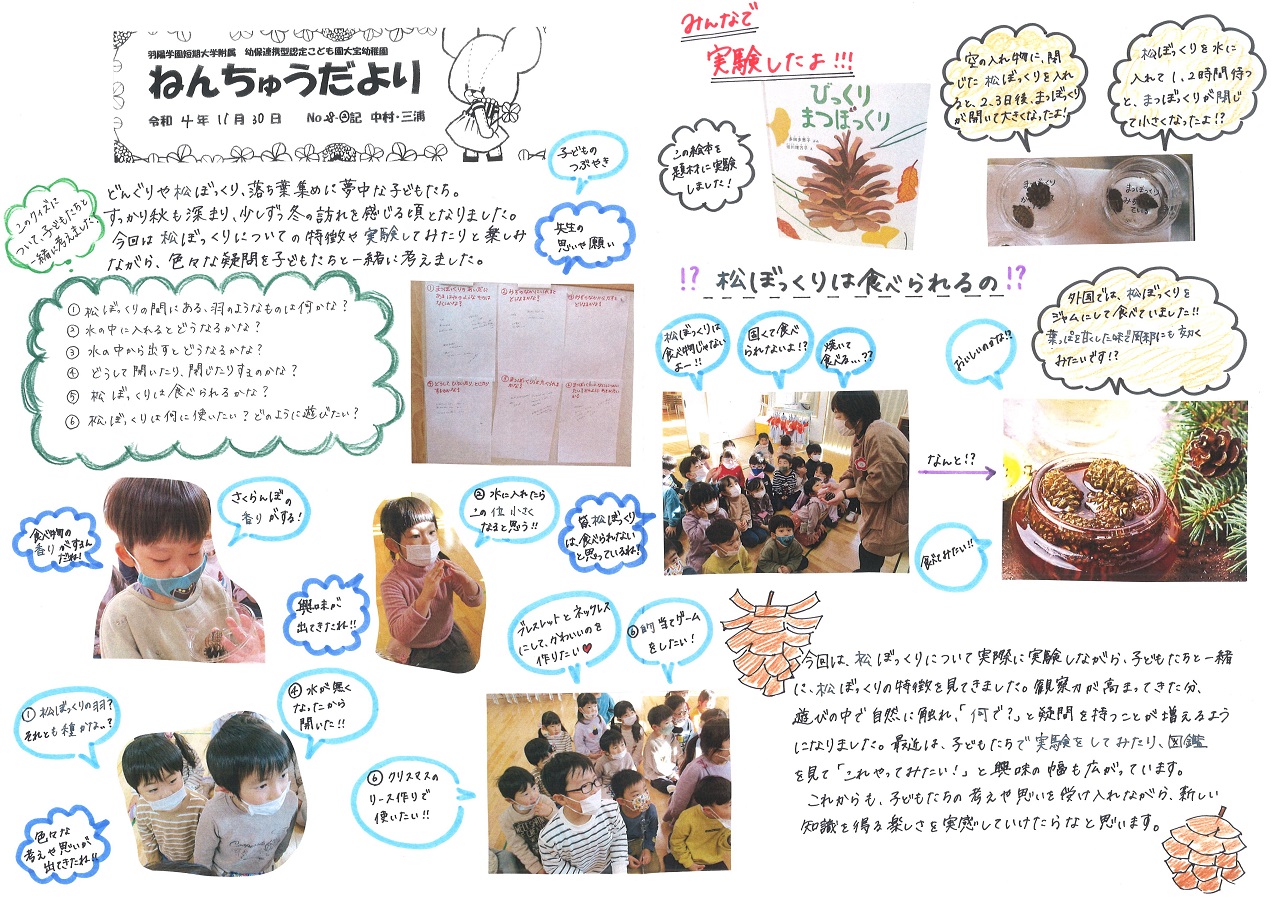 羽陽学園短期大学附属 幼保連携型認定こども園大宝幼稚園
ねんちゅうだより
令和 4 年 11月 30日 No.8-②記 中村・三浦
子どもの
つぶやき
先生の
思いや願い
このクイズに
ついて、子どもたちと
一緒に考えました!
どんぐりや松ぼっくり、落ち葉集めに夢中な子どもたち。
すっかり秋も深まり、少しずつ冬の訪れを感じる頃となりました。
今回は松ぼっくりについての特徴や実験してみたりと楽しみ
ながら、色々な疑問を子どもたちと一緒に考えました。
① 松ぼっくりの間にある、羽のようなものは何かな?
② 水の中に入れるとどうなるかな?
③ 水の中から出すとどうなるかな?
④ どうして開いたり、閉じたりするのかな?
⑤ 松ぼっくりは食べられるかな?
⑥ 松ぼっくりは何に使いたい?どのように遊びたい?
食べ物の
香りがするん
だね!
さくらんぼの
香りがする!
興味が
出てきたね!!
② 水に入れたら
この位小さく
なると思う!!
皆、松ぼっくり
は、食べられない
と思っているね!
① 松ぼっくりの羽?
それとも種かな..?
④ 水が無く
なったから
開いた!!
色々な
考えや思いが
出てきたね!!
⑥ クリスマスの
リース作りで
使いたい!!
ブレスレットとネックレス
にして、かわいいのを
作りたい♥
⑥ 的当てゲーム
をしたい!
みんなで
実験したよ!!!
この絵本を
題材に実験
しました!
びっくり
まつぼっくり
空の入れ物に、閉
じた松ぼっくりを入れ
ると、2、3日後、まつぼっくり
が開いて大きくなったよ!
松ぼっくりを水に
入れて1、2時間待つ
と、まつぼっくりが閉じ
て小さくなったよ!?
!? 松ぼっくりは食べられるの !?
松ぼっくりは
食べ物じゃない
よー!!
固くて食べ
られないよ!?
焼いて
食べる...??
おいしいのかな!?
外国では、松ぼっくりを
ジャムにして食べていました!!
葉っぱを甘くした味で風邪にも効く
みたいです!?
なんと!?
食べてみたい!!
今回は、松ぼっくりについて実際に実験しながら、子どもたちと一緒
に、松ぼっくりの特徴を見てきました。観察力が高まってきた分、
遊びの中で自然に触れ、「何で?」と疑問を持つことが増えるよう
になりました。最近は、子どもたちで実験をしてみたり、図鑑
を見て「これやってみたい!」と興味の幅も広がっています。
これからも、子どもたちの考えや思いを受け入れながら、新しい
知識を得る楽しさを実感していけたらなと思います。